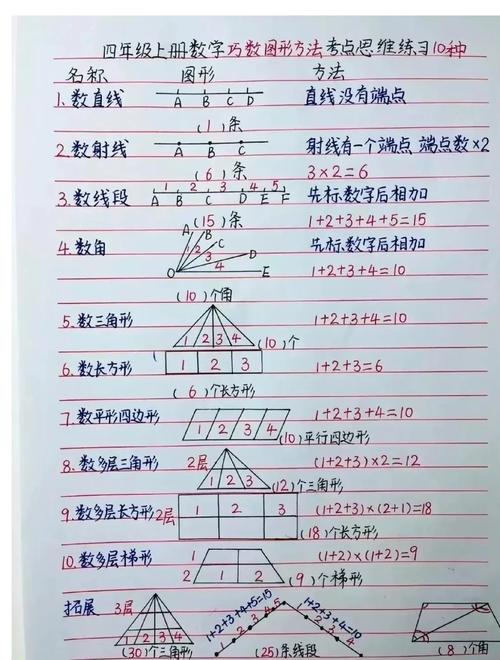 四年级上册数学巧数图形方法考点思维练习10种
名称 图形 方法
1.数直线 A B C D 直线没有端点
(1)条
2.数射线 A B C 射线有一个端点 端点数×2
(6)条 3×2=6
3.数线段 1 2 3 4 5 A B C D E F 先标数字后相加
(15)条 1+2+3+4+5=15
4.数角 A B C D E O 1 2 3 4 先标数字后相加
1+2+3+4=10
(10)个角
5.数三角形 1 2 3 4 (10)个 1+2+3+4=10
6.数长方形 1 2 3 1+2+3=6
(6)个长方形
7.数平形四边形 1 2 3 4 1+2+3+4=10
(10)平行四边形
8.数多层三角形 2层 1 2 3 (1+2+3)×2=12
(12)个三角形
9.数多层长方形 2层 1 2 3 (1+2+3)×(2+1)=18
(18)个长方形
10.数多层梯形 1 2 1 2 (1+2)×(1+2)=9
(9)个梯形
拓展 3层 1 2 3 4 1+2+3+4+5=15 1 2 3 4 5 1+2+3+4=10 1 2 3 4
(30)个三角形 (25)条线段 (8)个角